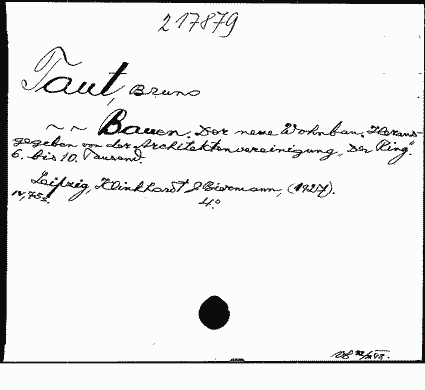 217879
Taut, Bruno
~ ~ Bauen. Der neue Wohnbau. Heraus-
gegeben von der Architektenvereinigung „Der Ring".
6. bis 10. Tausend.
Leipzig, Klinkhardt & Biermann, (1927).
IV, 75 S. 4°